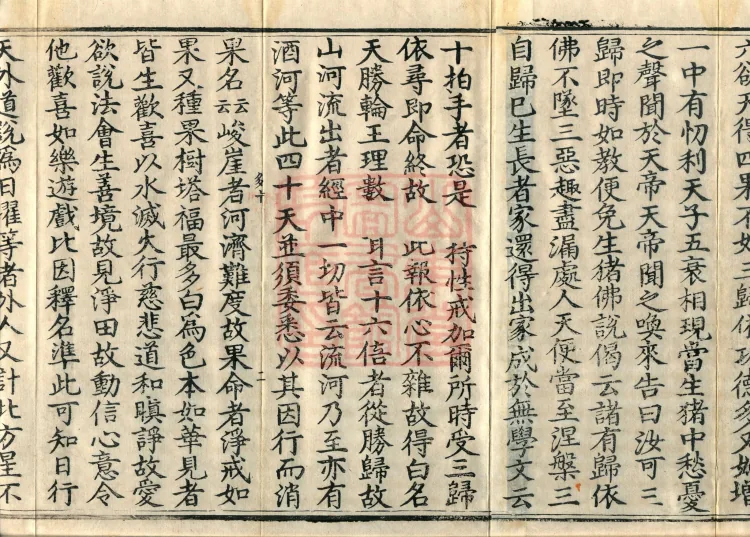 六欲天得四果
一中有忉利天子五衰相現當生猪中愁憂
之聲聞於天帝天帝聞之喚來告曰汝可三
歸即時如教便免生猪佛說偈云諸有歸依
佛不墜三惡趣盡漏處人天便當至涅槃三
自歸巳生長者家還得出家成於無學文云
十拍手者恐是 持性戒加爾所時受三歸
依尋即命終故 此報依心不雜故得白名
天勝輪王理數 耳言十六倍者從勝歸故
山河流出者經中一切皆云流河乃至亦有
酒河等此四十天並須委悉以其因行而消
果名云云峻崖者河濟難度故果命者淨戒如
果又種果樹塔福最多白為色本如華見者
皆生歡喜以水滅火行慈悲道和瞋諍故愛
欲說法會生善境故見淨田故動信心意令
他歡喜如樂遊戲比因釋名準此可知日行
天外道說為日曜等者外人又計此方星不